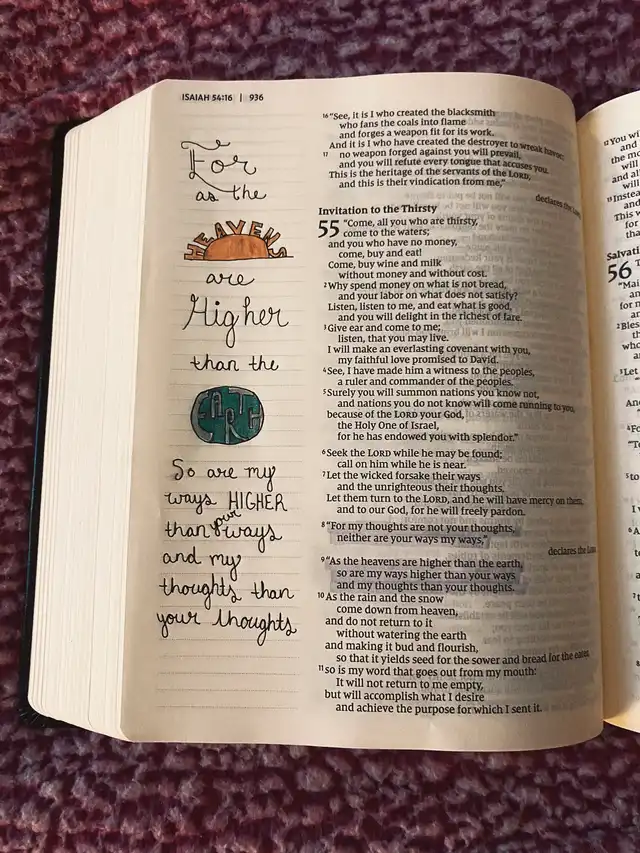 ISAIAH 54:16 | 936
For
as the
HEAVENS
are
Higher
than the
EARTH
So are my
ways HIGHER
than your ways
and my
thoughts than
your thoughts
16 "See, it is I who created the blacksmith
who fans the coals into flame
and forges a weapon fit for its work.
And it is I who have created the destroyer to wreak havoc;
17 no weapon forged against you will prevail,
and you will refute every tongue that accuses you.
This is the heritage of the servants of the LORD,
and this is their vindication from me,"
declares the LORD.
Invitation to the Thirsty
55 "Come, all you who are thirsty,
come to the waters;
and you who have no money,
come, buy and eat!
Come, buy wine and milk
without money and without cost.
2 Why spend money on what is not bread,
and your labor on what does not satisfy?
Listen, listen to me, and eat what is good,
and you will delight in the richest of fare.
3 Give ear and come to me;
listen, that you may live.
I will make an everlasting covenant with you,
my faithful love promised to David.
4 See, I have made him a witness to the peoples,
a ruler and commander of the peoples.
5 Surely you will summon nations you know not,
and nations you do not know will come running to you,
because of the LORD your God,
the Holy One of Israel,
for he has endowed you with splendor."
6 Seek the LORD while he may be found;
call on him while he is near.
7 Let the wicked forsake their ways
and the unrighteous their thoughts.
Let them turn to the LORD, and he will have mercy on them,
and to our God, for he will freely pardon.
8 "For my thoughts are not your thoughts,
neither are your ways my ways,"
declares the LORD.
9 "As the heavens are higher than the earth,
so are my ways higher than your ways
and my thoughts than your thoughts.
10 As the rain and the snow
come down from heaven,
and do not return to it
without watering the earth
and making it bud and flourish,
so that it yields seed for the sower and bread for the eater,
11 so is my word that goes out from my mouth:
It will not return to me empty,
but will accomplish what I desire
and achieve the purpose for which I sent it.
12 You wi
and
the mo
will
and all
will
13 Instea
and
This w
for
tha
Salvati
56
"Mai
an
for m
a
2 Bles
th
who
a
3 Let
An
4 Fo
"T
5 to
I
6 A